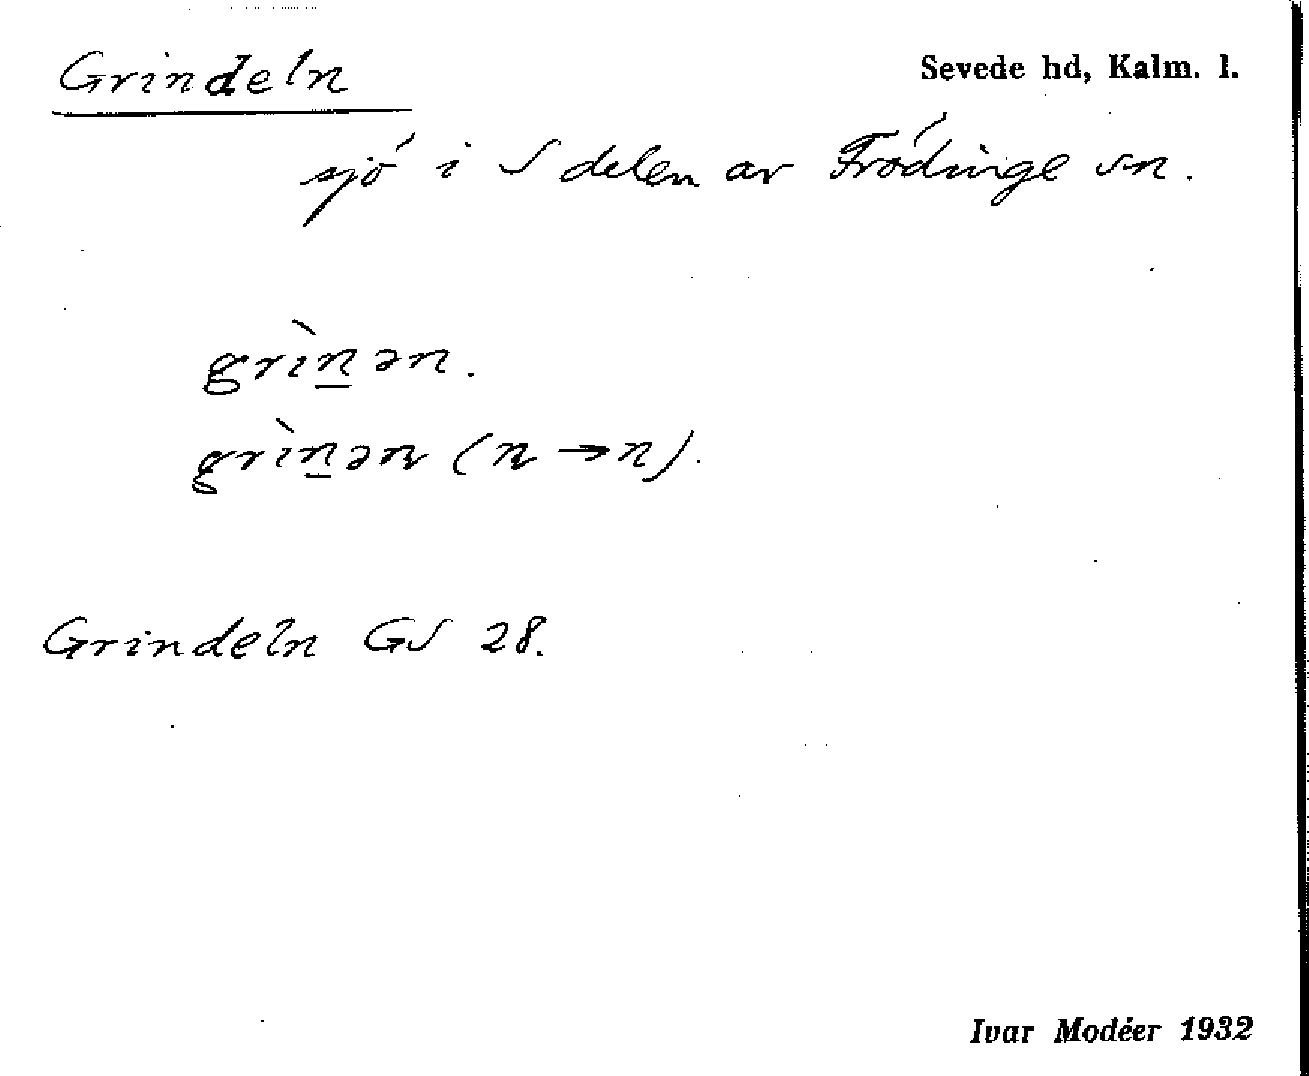 Grindeln
Sevede hd, Kalm. l.
sjö i S delen av Frödinge sn.
grìn̲ən.
grìn̲əɳ (ɳ → n).
Grindeln GS 28.
Ivar Modéer 1932